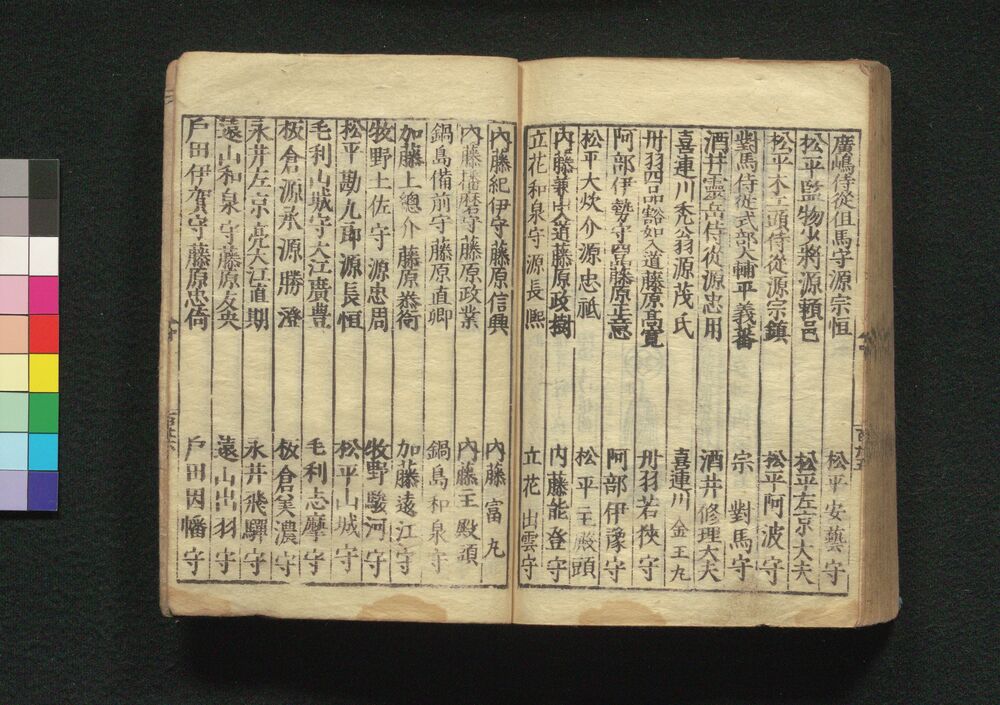 廣嶋侍從但馬守源宗恒 松平安藝守
松平監物少將源頼邑 松平左京大夫
松平木工頭侍從源宗鎮 松平阿波守
對馬侍從式部大輔平義蕃 宗對馬守
酒井靈岳侍從源忠用 酒井修理大夫
喜連川禿翁源茂氏 喜連川金王丸
丹羽四品豁如入道藤原高寛 丹羽若狹守
阿部伊勢守四品藤原正意 阿部伊豫守
松平大炊介源忠祗 松平主殿頭
内藤兼山大道藤原政樹 内藤能登守
立花和泉守源長煕 立花出雲守
内藤紀伊守藤原信興 内藤富丸
内藤播磨守藤原政業 内藤主殿頭
鍋島備前守藤原直郷 鍋島和泉守
加藤上總介藤原泰衑 加藤遠江守
牧野土佐守源忠周 牧野駿河守
松平勘九郎源長恒 松平山城守
毛利山城守大江廣豊 毛利志摩守
板倉源承源勝澄 板倉美濃守
永井左京亮大江直期 永井飛驒守
遠山和泉守藤原友央 遠山出羽守
戸田伊賀守藤原忠倚 戸田因幡守